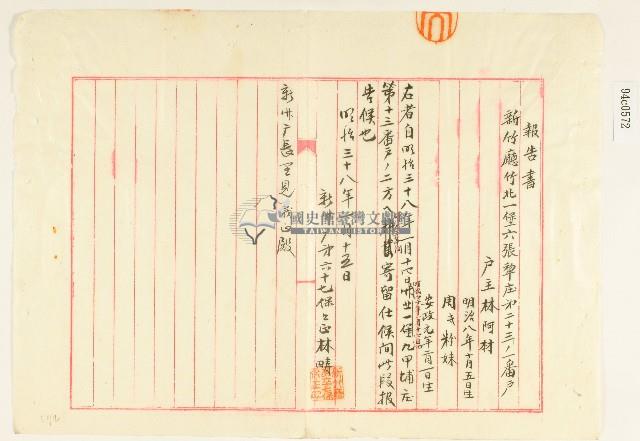 報告書
新竹廳竹北一堡六張犁庄第二十三ノ一番戶
戶主林阿材
明治八年 月五日生
周 粉妹
安政元年 月一日生
右者自明治三十八年一月十 日竹北一堡九甲埔庄
第十三番戶ノ二方へ 寄留仕候間此段報
告候也
明治三十八年 月十五日
新 第六十七保保正林疇
新竹廳長里見義正殿
國史館臺灣文獻館
TAIWAN HISTORICA
94c0572